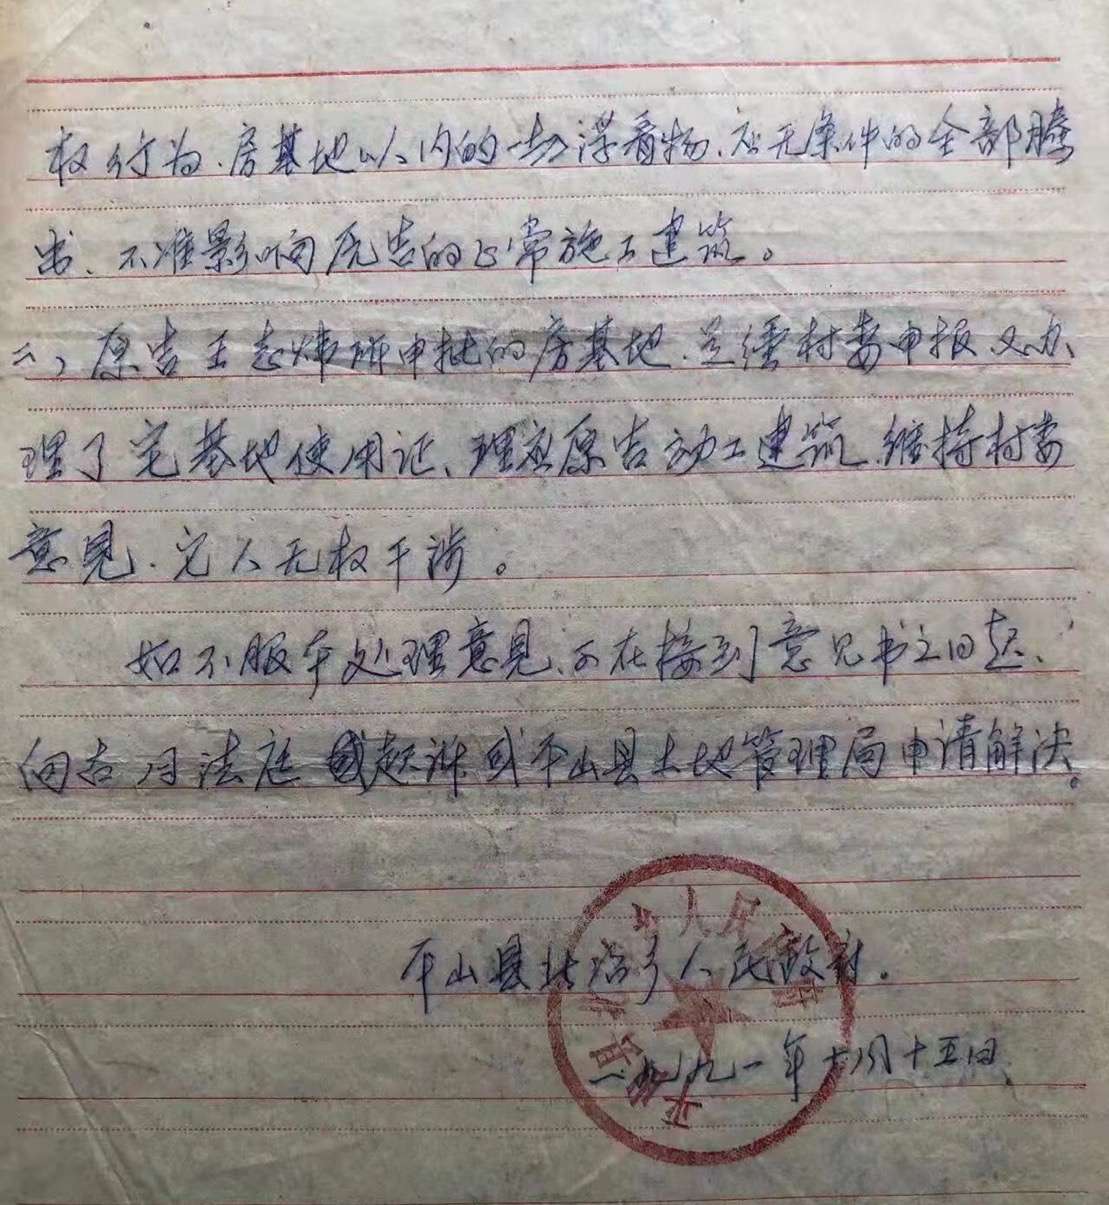 权行为、房基地以内的一切浮着物、应无条件的全部腾
出、不准影响原告的正常施工建筑。
二、原告王志炜所申批的房基地、是经村委申报、又办
理了宅基地使用证、理应原告动工建筑、维持村委
意见、它人无权干涉。
如不服本处理意见、可在接到意见书之日起、
向古月法庭起诉或平山县土地管理局申请解决。
平山县北冶乡人民政府。
一九九一年 月十五日